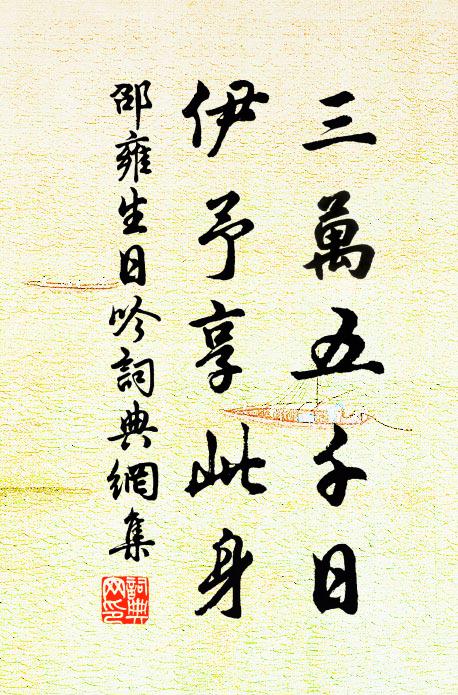 三萬五千日
伊予享此身
邵雍生日吟詞典網集
詞典网印